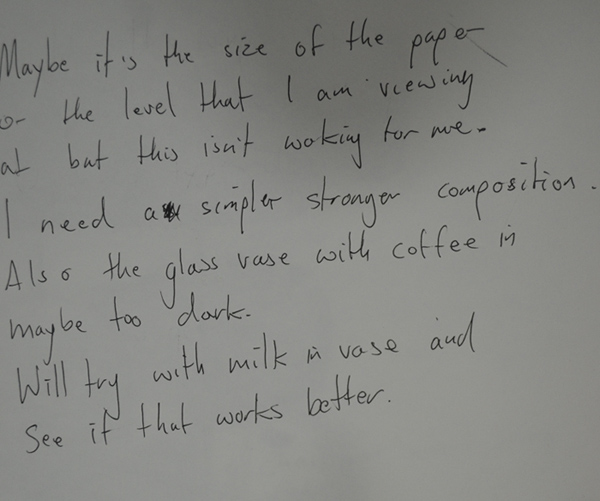 Maybe it's the size of the paper
or the level that I am viewing
at but this isn't working for me.
I need a simpler stronger composition.
Also the glass vase with coffee in
maybe too dark.
Will try with milk in vase and
See if that works better.